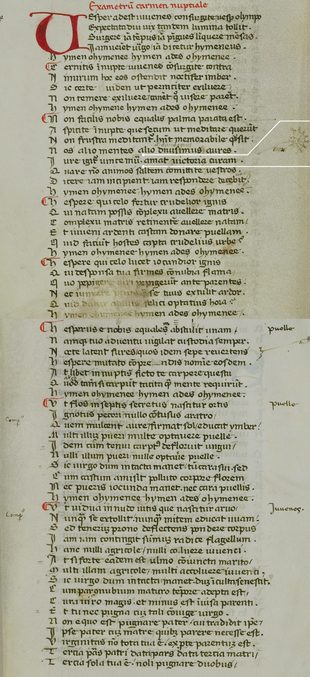 Exametrum carmen nuptiale
Vesper adest iuuenes consurgite uesper olympo
Expectata diu uix tandem lumina tollit
Surgere iam tempus iam pigues liquere mensas
Iam ueniet uirgo iam dicetur hymeneus
Hymen ohymenee hymen ades ohymenee
Cernitis inupte iuuenes consurgite contra
Nimirum hoc eos ostendit noctifer imber
Sic certe uiden ut perniciter exiluere
Non temere exiluere canent quod uisere parent
Hymen ohymenee hymen ades ohymenee
Non facilis nobis equalis palma parata est
Aspicite inupte que secum ut meditare querunt
Non frustra meditantur habent memorabile quod sit
Nos alio mentes alio diuisimus aures
Iure igitur uincemur amat uictoria curam
Quare nunc animos saltem comitite uestros
Dicere iam incipient iam respondere decebit
Hymen ohymenee hymen ades ohymenee
Hespere qui celo fertur crudelior ignis
Qui natam possis complexu auellere matris
Complexu matris retinentem auellere natam
Et iuueni ardenti castam donare puellam
Quid faciunt hostes capta crudelius urbe
Hymen ohymenee hymen ades ohymenee
Hespere qui celo lucet iocundior ignis
Qui desponsa tua firmes conubia flama
Hymen ohymenee hymen ades ohymenee
Hesperus e nobis equales abstulit unam
Puelle
Namque tuo aduentu uigilat custodia semper
Nocte latent fures quos idem sepe reuertens
Hespere mutato comprendis nomine eosdem
At libet in nuptis ficto te carpere questu
Quid tamen si carpunt tacita quem mente requirunt
Hymen ohymenee hymen ades ohymenee
Ut flos in septis secretus nascitur ortis
Puelle
Ignotus pecori nullo contusus aratro
Quem mulcent aure firmat sol educat ymber
Multi illum pueri multe optauere puelle
Idem cum tenui carptus defloruit ungui
Nulli illum pueri nulle optauere puelle
Sic uirgo dum intacta manet tum cara suis sed
Cum castum amisit polluto corpore florem
Nec pueris iocunda manet nec cara puellis
Hymen ohymenee hymen ades ohymenee
Ut uidua in nudo uitis que nascitur aruo
Iuuenes
Nunquam se extollit nunquam mitem educat uuam
Sed tenerum prono deflectens pondere corpus
Iam iam contingit summum radice flagellum
Hanc nulli agricole nulli coluere iuuenci
At si forte eadem est ulmo coniuncta marito
Multi illam agricole multi accoluere iuuenci
Sic uirgo dum intacta manet dum inculta senescit
Cum par conubium maturo tempore adepta est
Cara uiro magis et minus est inuisa parenti
Et tu nec pugna cum tali coniuge uirgo
Non equo est pugnare pater cui tradidit ipse
Ipse pater cum matre quibus parere necesse est
Virginitas non tota tua est ex parte parentum est
Tercia pars patri data pars data tercia matri
Tercia sola tua est noli pugnare duobus